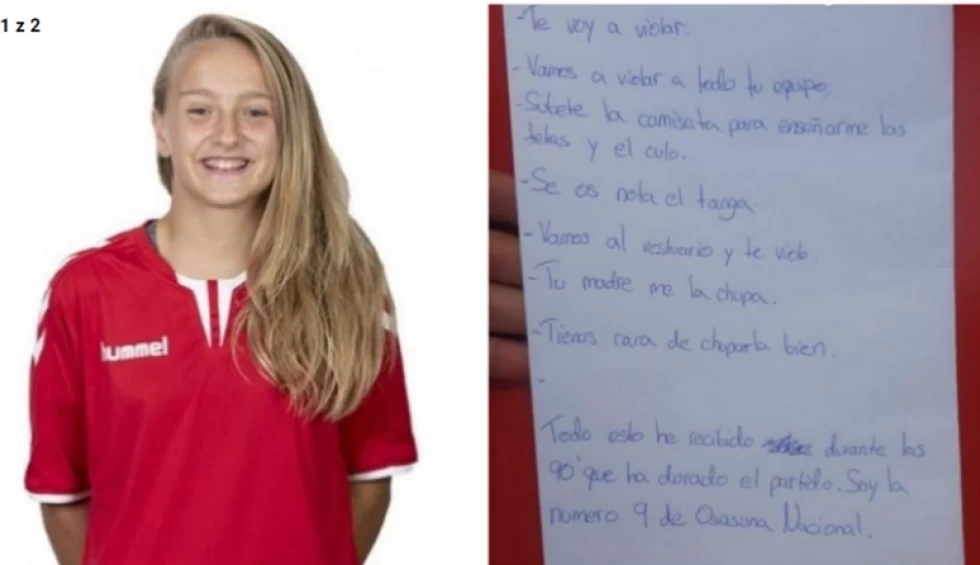 1 z 2
hummel
-Te voy a violar.
-Vamos a violar a todo tu equipo.
-Subete la camiseta para enseñarme las
tetas y el culo.
-Se os nota el tanga
-Vamos al vestuario y te violo.
-Tu madre me la chupa.
-Tienes cara de chuparla bien.
-
Todo esto he recibido durante los
90' que ha durado el partido. Soy la
numero 9 de Osasuna Nacional.